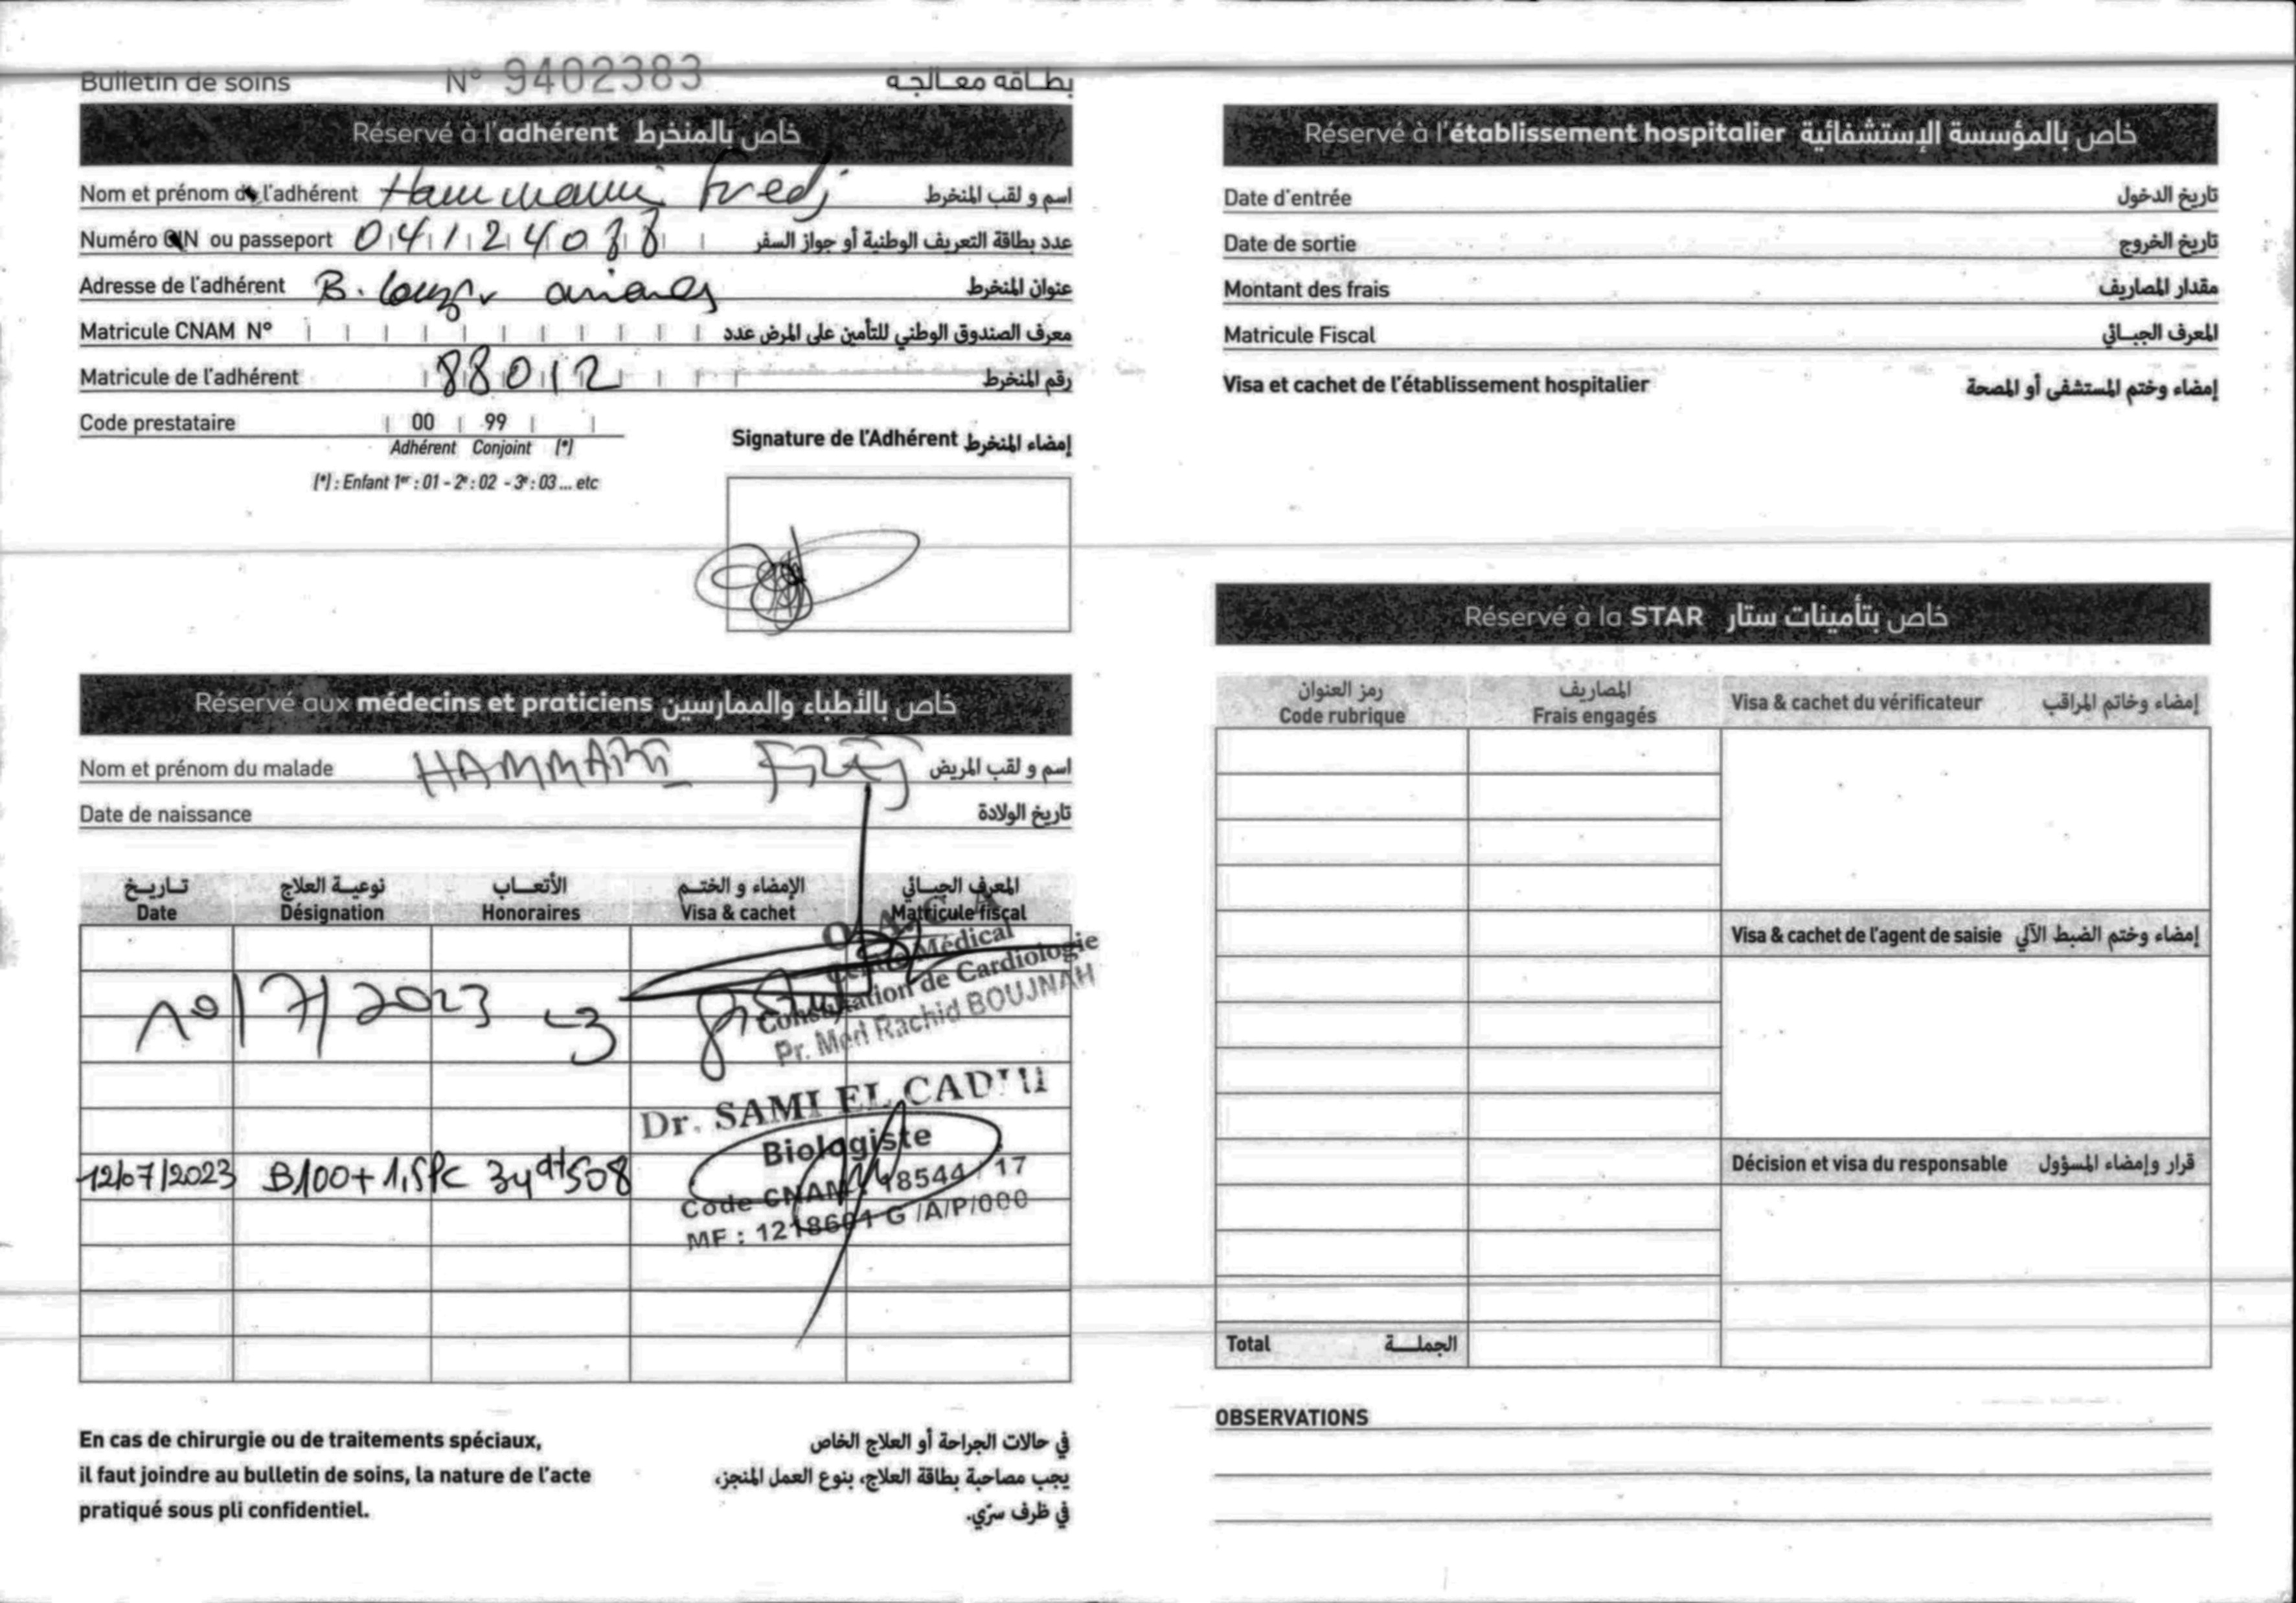 Bulletin de soins N° 9402383 بطاقة معالجة
Réservé à l'adhérent خاص بالمنخرط
Nom et prénom de l'adhérent Hammami Fredj اسم و لقب المنخرط
Numéro CIN ou passeport عدد بطاقة التعريف الوطنية أو جواز السفر
Adresse de l'adhérent B. عنوان المنخرط
Matricule CNAM N° معرف الصندوق الوطني للتأمين على المرض عدد
Matricule de l'adhérent 88012 رقم المنخرط
Code prestataire 00 99
Adhérent Conjoint (*)
(*) : Enfant 1er : 01 - 2e : 02 - 3e : 03 ... etc
Signature de l'Adhérent إمضاء المنخرط
Réservé aux médecins et praticiens خاص بالأطباء والممارسين
Nom et prénom du malade HAMMAMI اسم و لقب المريض
Date de naissance تاريخ الولادة
تـاريـخ نوعيـة العلاج الأتعـاب الإمضاء و الختـم المعرف الجبـائي
Date Désignation Honoraires Visa & cachet Matricule fiscal
Centre Médical
Consultation de Cardiologie
Pr. Med Rachid BOUJNAH
10/7/2023
Dr. SAMI EL CADHI
Biologiste
12/07/2023 B100+1,5PC 34dt508
Code CNAM : 18544 / 17
MF : 1218601 G /A/P/000
En cas de chirurgie ou de traitements spéciaux,
il faut joindre au bulletin de soins, la nature de l'acte
pratiqué sous pli confidentiel.
في حالات الجراحة أو العلاج الخاص
يجب مصاحبة بطاقة العلاج، بنوع العمل المنجز،
في ظرف سرّي.
Réservé à l'établissement hospitalier خاص بالمؤسسة الإستشفائية
Date d'entrée تاريخ الدخول
Date de sortie تاريخ الخروج
Montant des frais مقدار المصاريف
Matricule Fiscal المعرف الجبـائي
Visa et cachet de l'établissement hospitalier إمضاء وختم المستشفى أو المصحة
Réservé à la STAR خاص بتأمينات ستار
رمز العنوان المصاريف
Code rubrique Frais engagés
Visa & cachet du vérificateur إمضاء وخاتم المراقب
Visa & cachet de l'agent de saisie إمضاء وختم الضبط الآلي
Décision et visa du responsable قرار وإمضاء المسؤول
Total الجملـــة
OBSERVATIONS